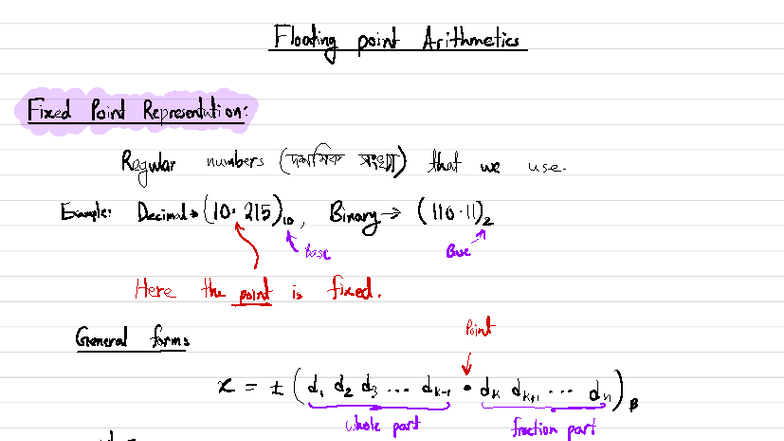 Floating point Arithmetics
Fixed Point Representation:
Regular numbers (দশমিক সংখ্যা) that we use.
Example: Decimal → (10.215)₁₀, Binary → (110.11)₂
Base Base
Here the point is fixed.
General form:
Point
x = ± (d₁ d₂ d₃ ... dₖ₋₁ . dₖ dₖ₊₁ ... dₙ)_β
whole part fraction part